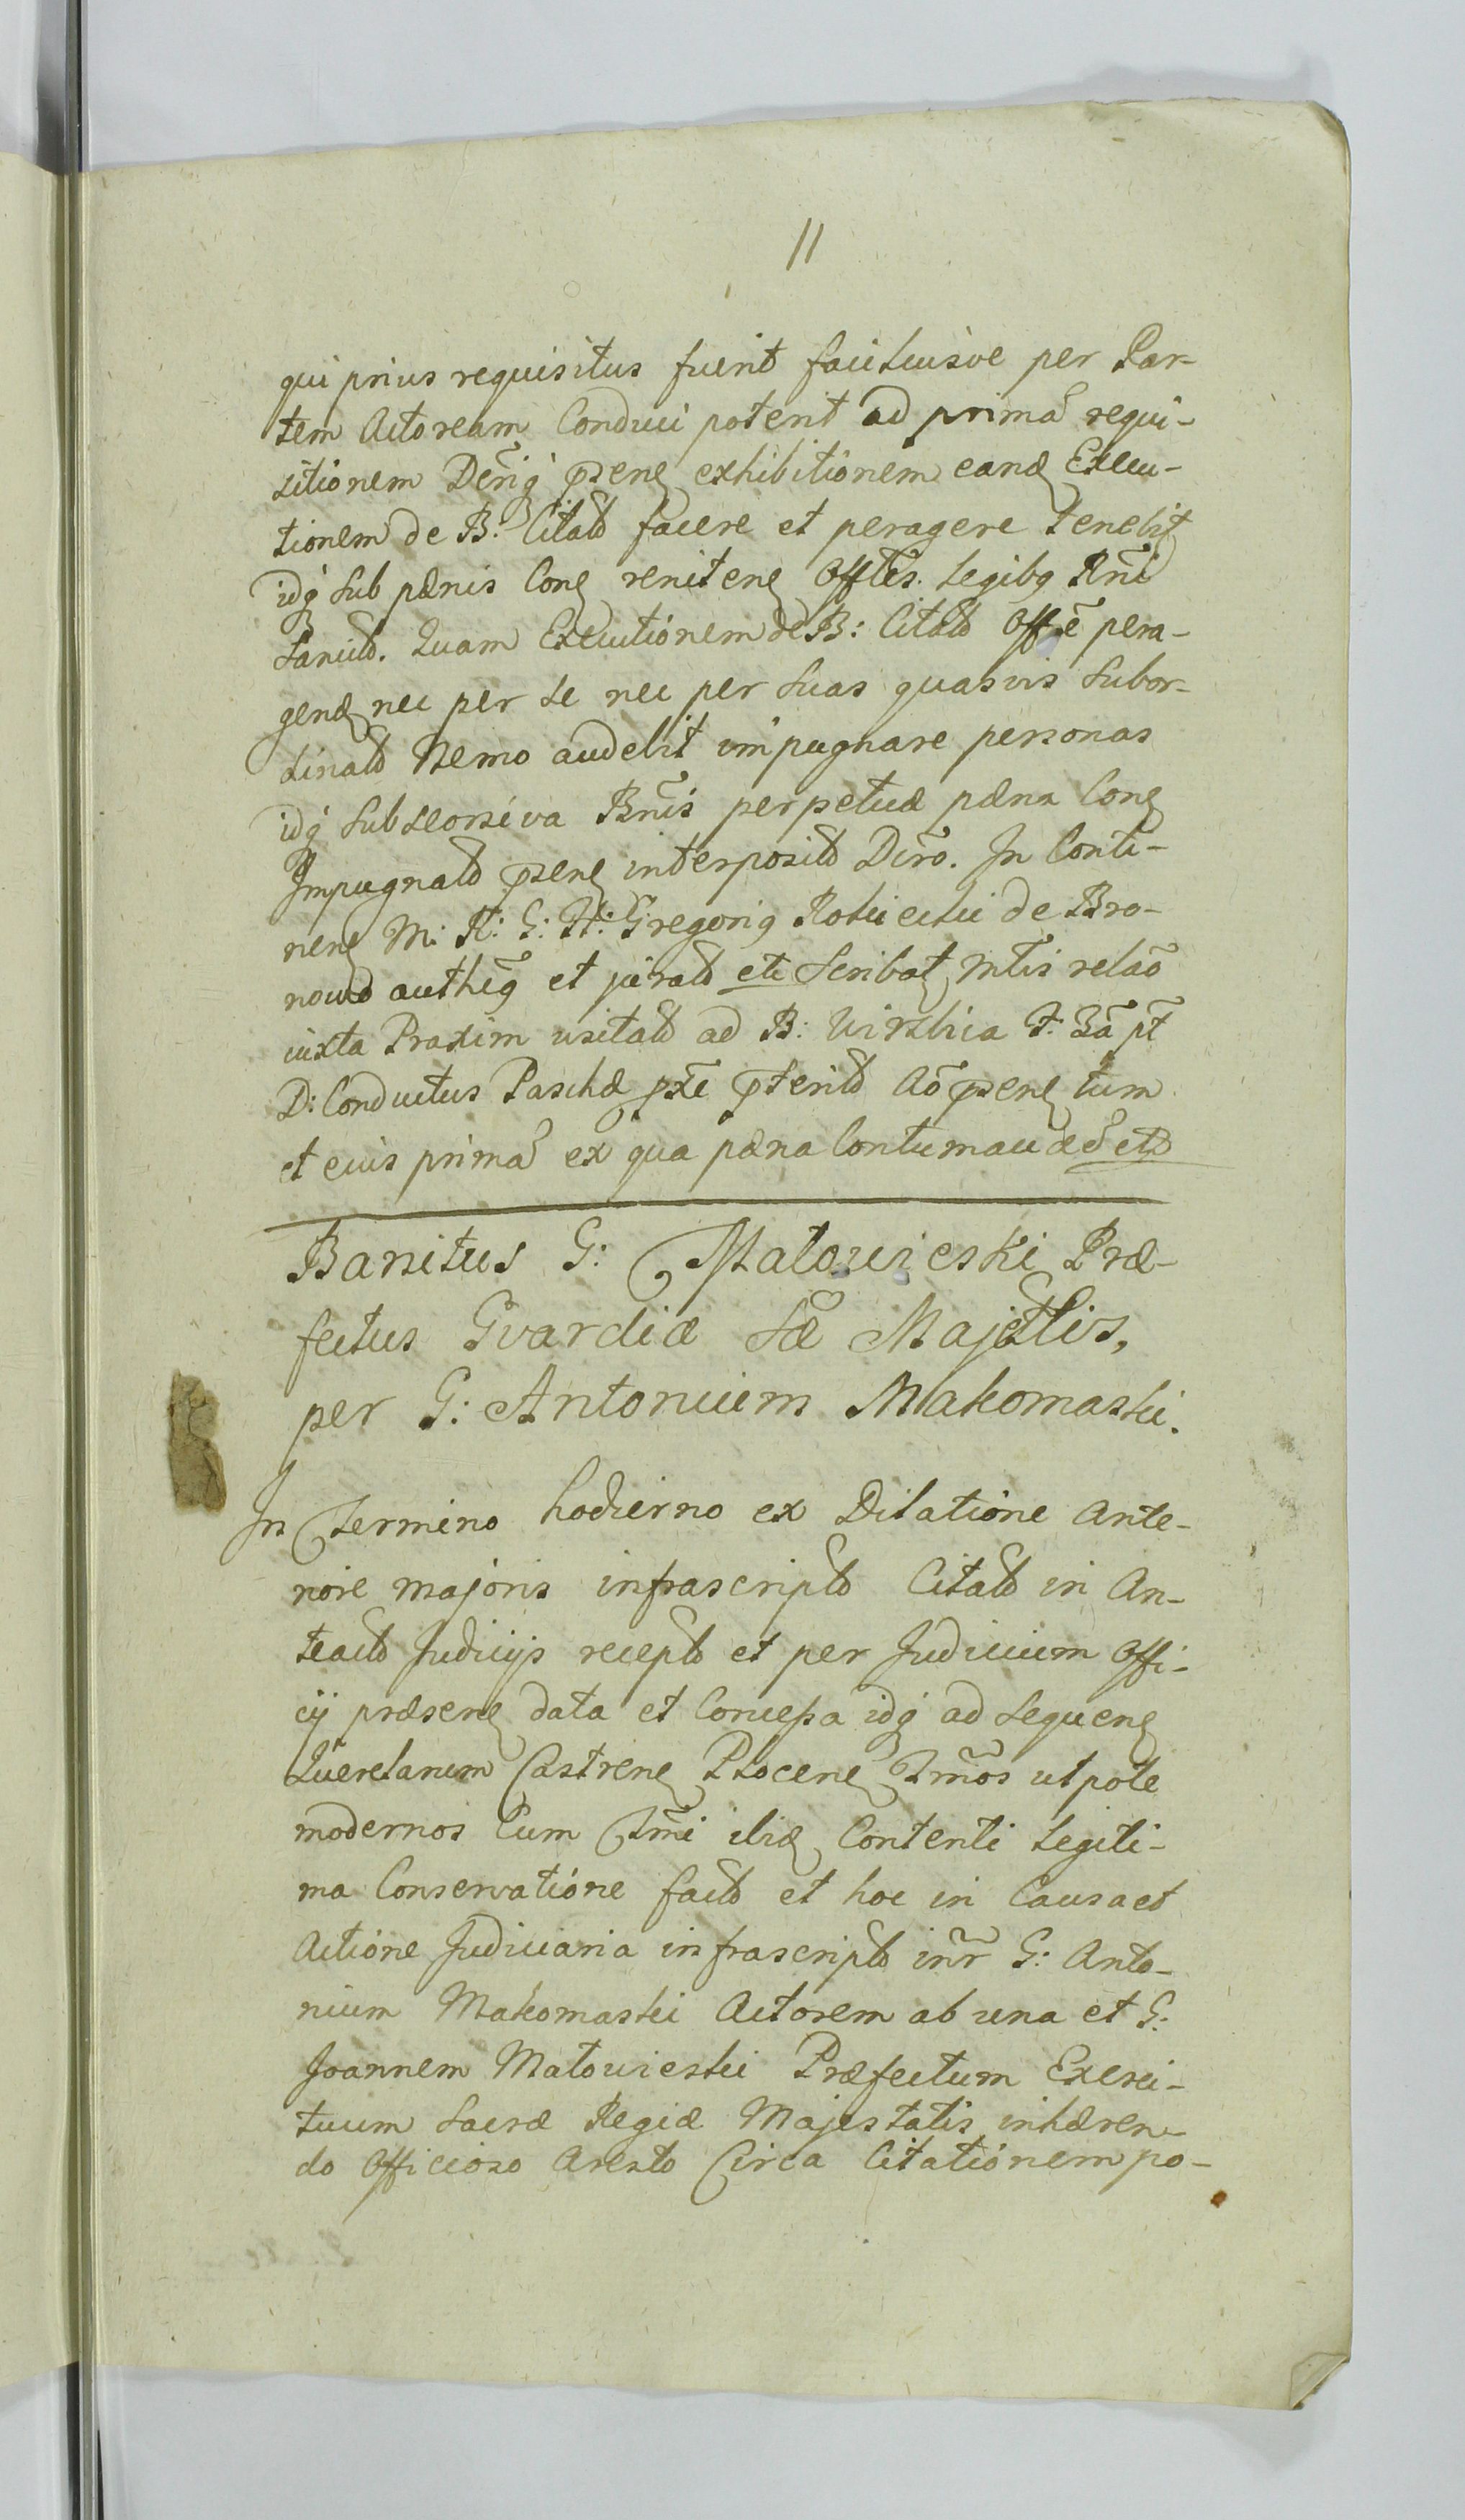 11
qui prius requisitus fuerit faciliusve per Par-
tem Actoream Conduci poterit ad primã requi-
sitionem Dẽniq̃ p̃senẽ exhibitionem eanđ Execu-
tionem de B: Citatt facere et peragere tenebit
idq̃ sub pænis Conẽ renitenẽ Offles. Legibq Rñi
Sancitt. Quam Executionem de B: Citatt Offẽ pera-
gendæ nec per se nec per suas quasvis subor-
dinatt Nemo audebit impugnare personas
idq̃ sub seorsiva Bñis perpetuæ pæna Conẽ
Impugnatt p̃senẽ interpositt Dirõ. In Conti-
nenẽ M: R: G: H: Gregoriq Robiecki de Bro-
nowo authẽq et juratt etc Scribat Mtis relaõ
iuxta Praxim usitatt ad B: Wirzbica F: 3ã pt
D: Conductus Paschæ px̃e p̃teritt Aõ p̃senẽ tum
et eius primã ex qua pæna Contumaci æđ ett
Banitus G: Matowieski Præ-
fectus Gvardiæ Sæ Majẽttis,
per G: Antonium Makomaski.
In Termino hodierno ex Dilatione Ante-
riore majoris infrascriptt Citatt in An-
teactt Judicijs receptt et per Judicium Offi-
cij præsenẽ data et Concessa idq̃ ad sequenẽ
Querelarum Castrenẽ Plocenẽ Tm̃os utpote
modernos Cum Tm̃i ibiđ Contenti Legiti-
ma Conservatione factt et hoc in Causa et
Actione Judiciaria infrascriptt inr̃ G: Anto-
nium Makomaski Actorem ab una et G:
Joannem Matowieski Præfectum Exerci-
tuum Sacræ Regiæ Majestatis inhæren-
do Officioso Aresto Circa Citationem po-